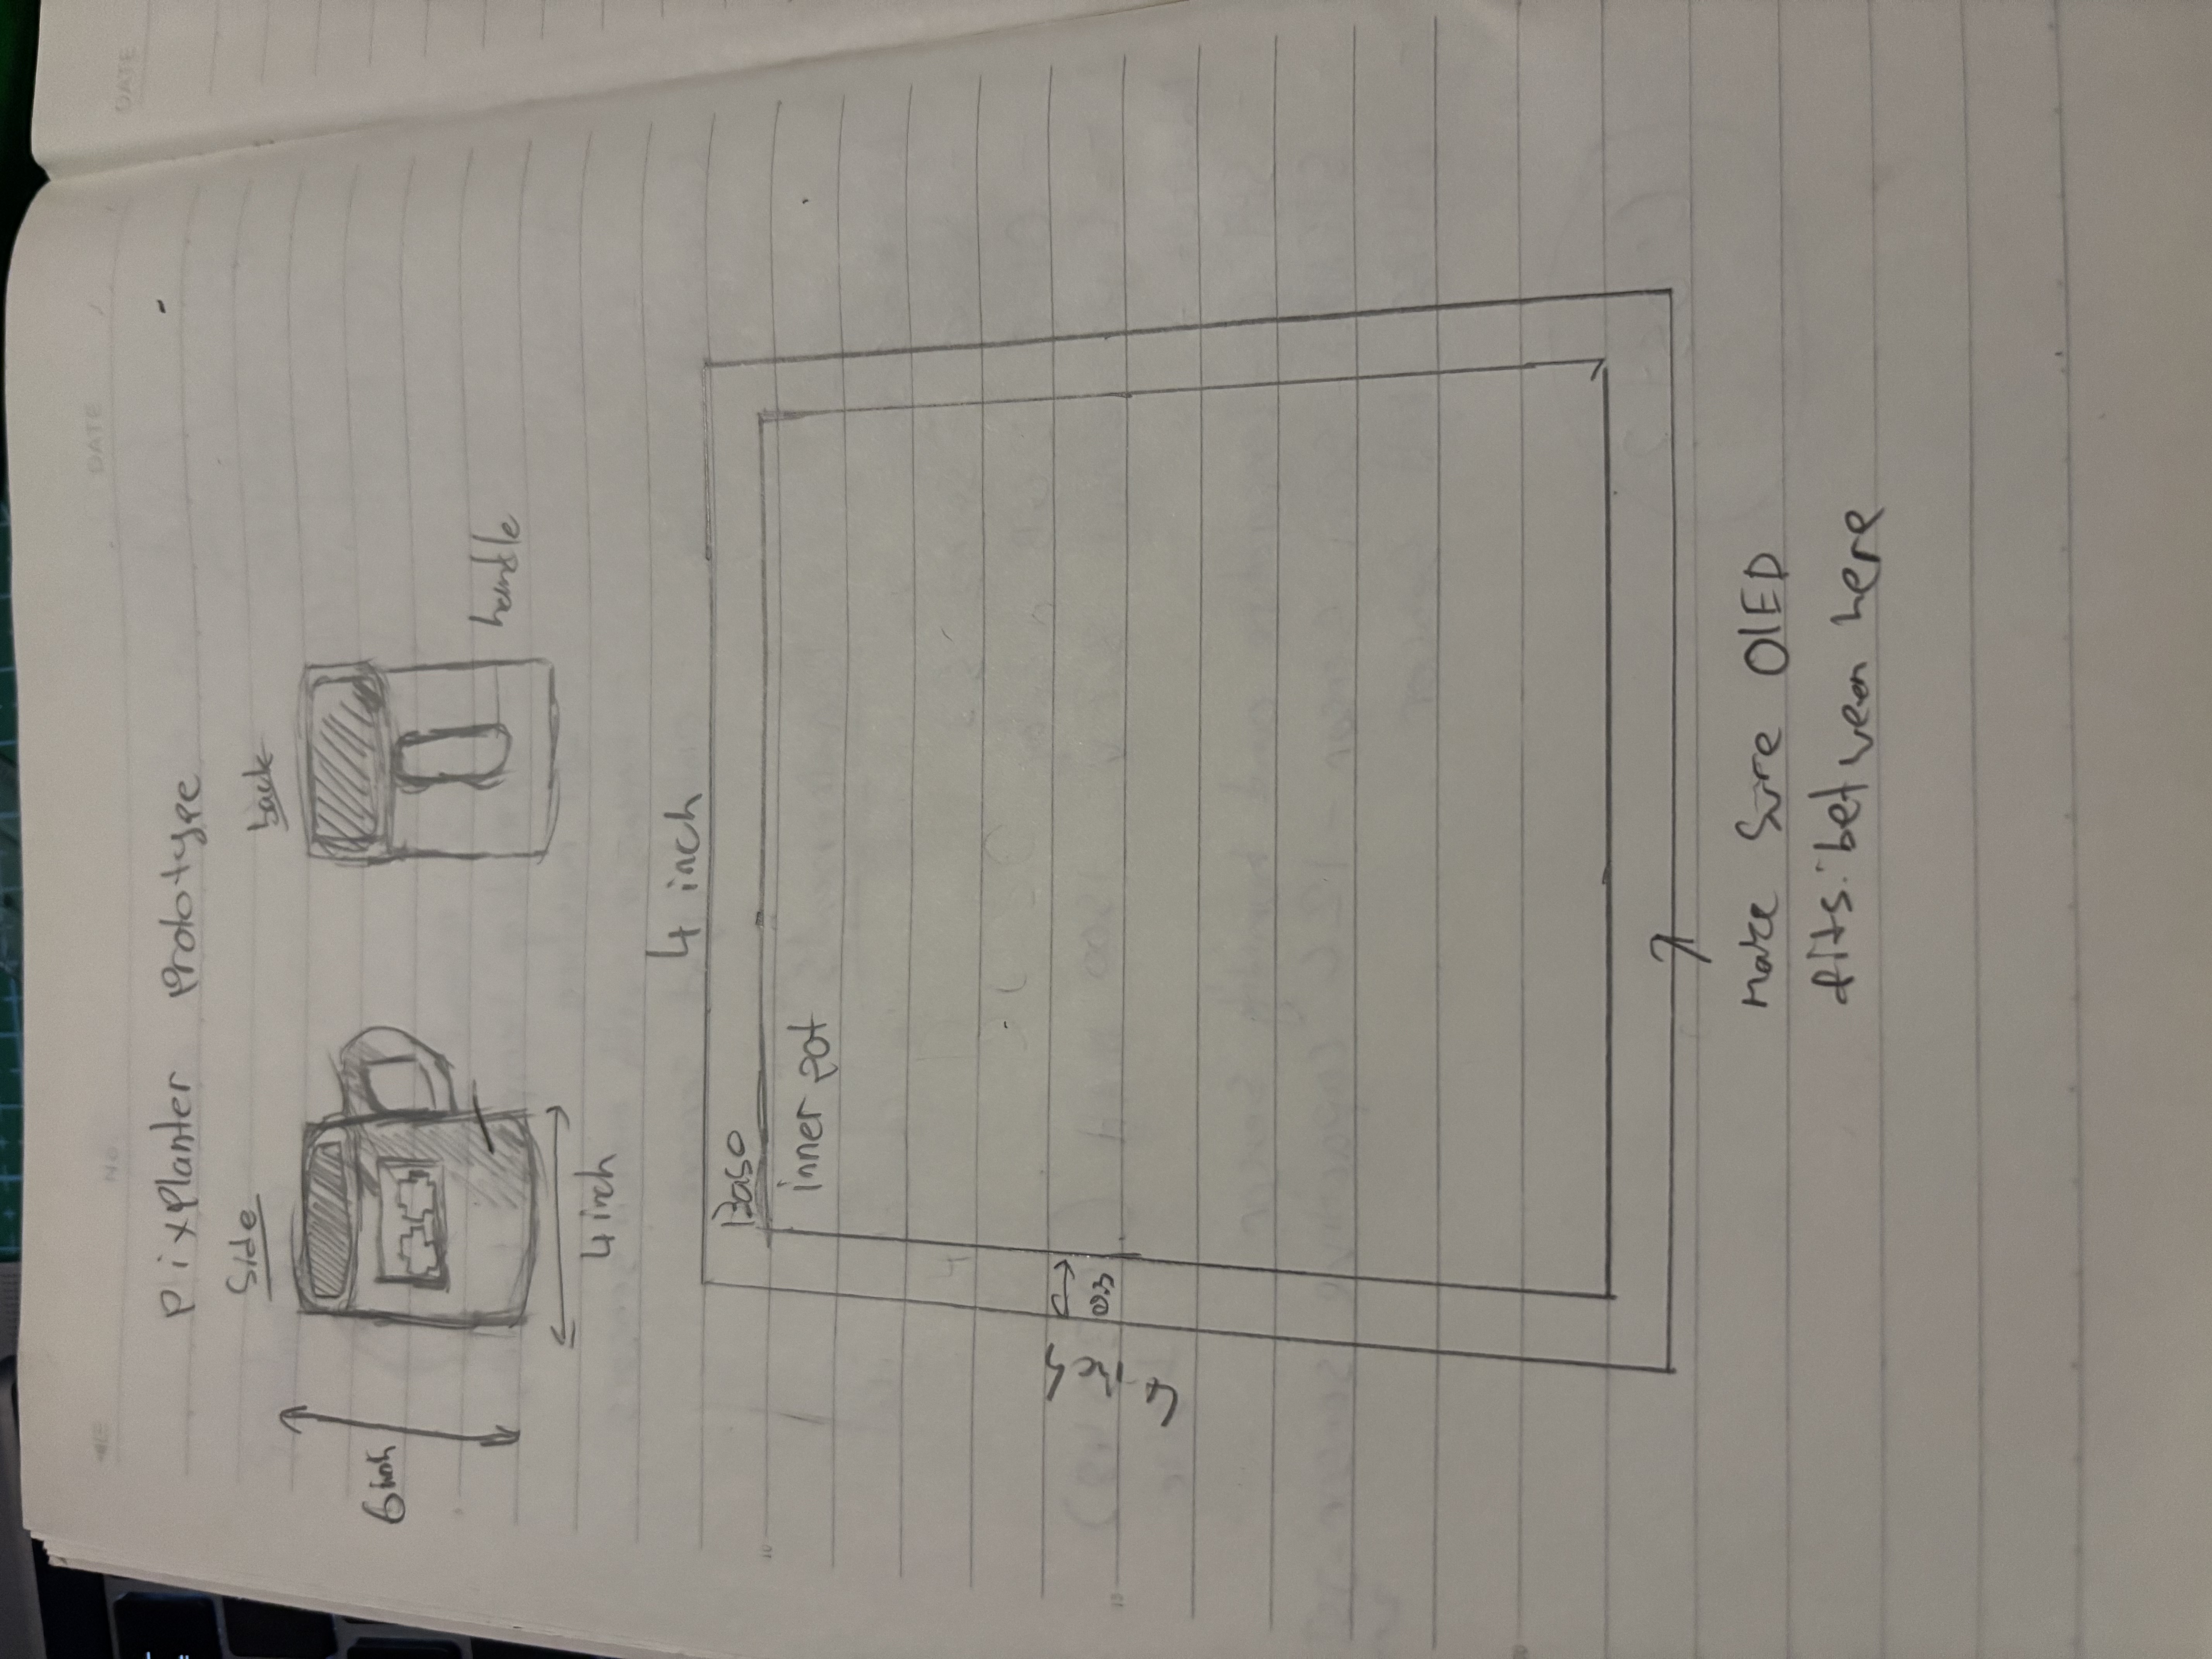 No.
DATE
DATE
PixPlanter Prototype
Side
back
6 inch
handle
4 inch
4 inch
Base
10
inner pot
4
4 inch
0.3
15
20
Make Sure OLED
fits between here